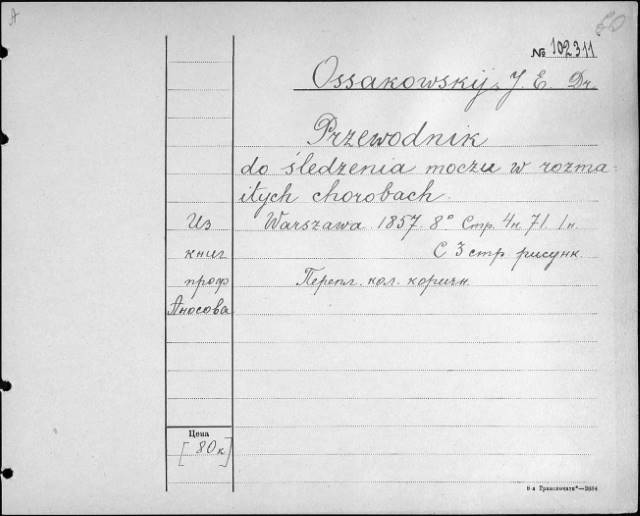 A
60
№ 102311
Ossakowskij, J. E. Dr.
Przewodnik
do śledzenia moczu w rozma-
itych chorobach.
Из Warszawa. 1857. 8° Стр. 4н. 71. 1н.
книг С 3 стр. рисунк.
проф Перепл. кол. коричн.
Аносова
Цена
[80к]